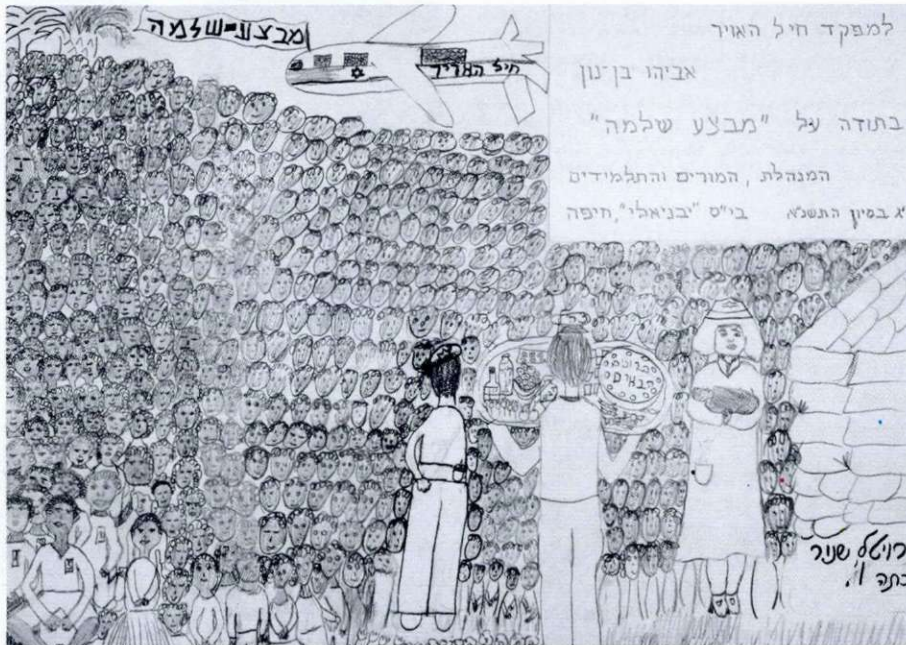 מבצע-שלמה
חיל האויר
למפקד חיל האויר
אביהו בן-נון
בתודה על "מבצע שלמה"
המנהלת, המורים והתלמידים
י"ג בסיון התשנ"א בי"ס "יבניאלי", חיפה
ברוכים
הבאים
רויטל שניר
כתה ו'.